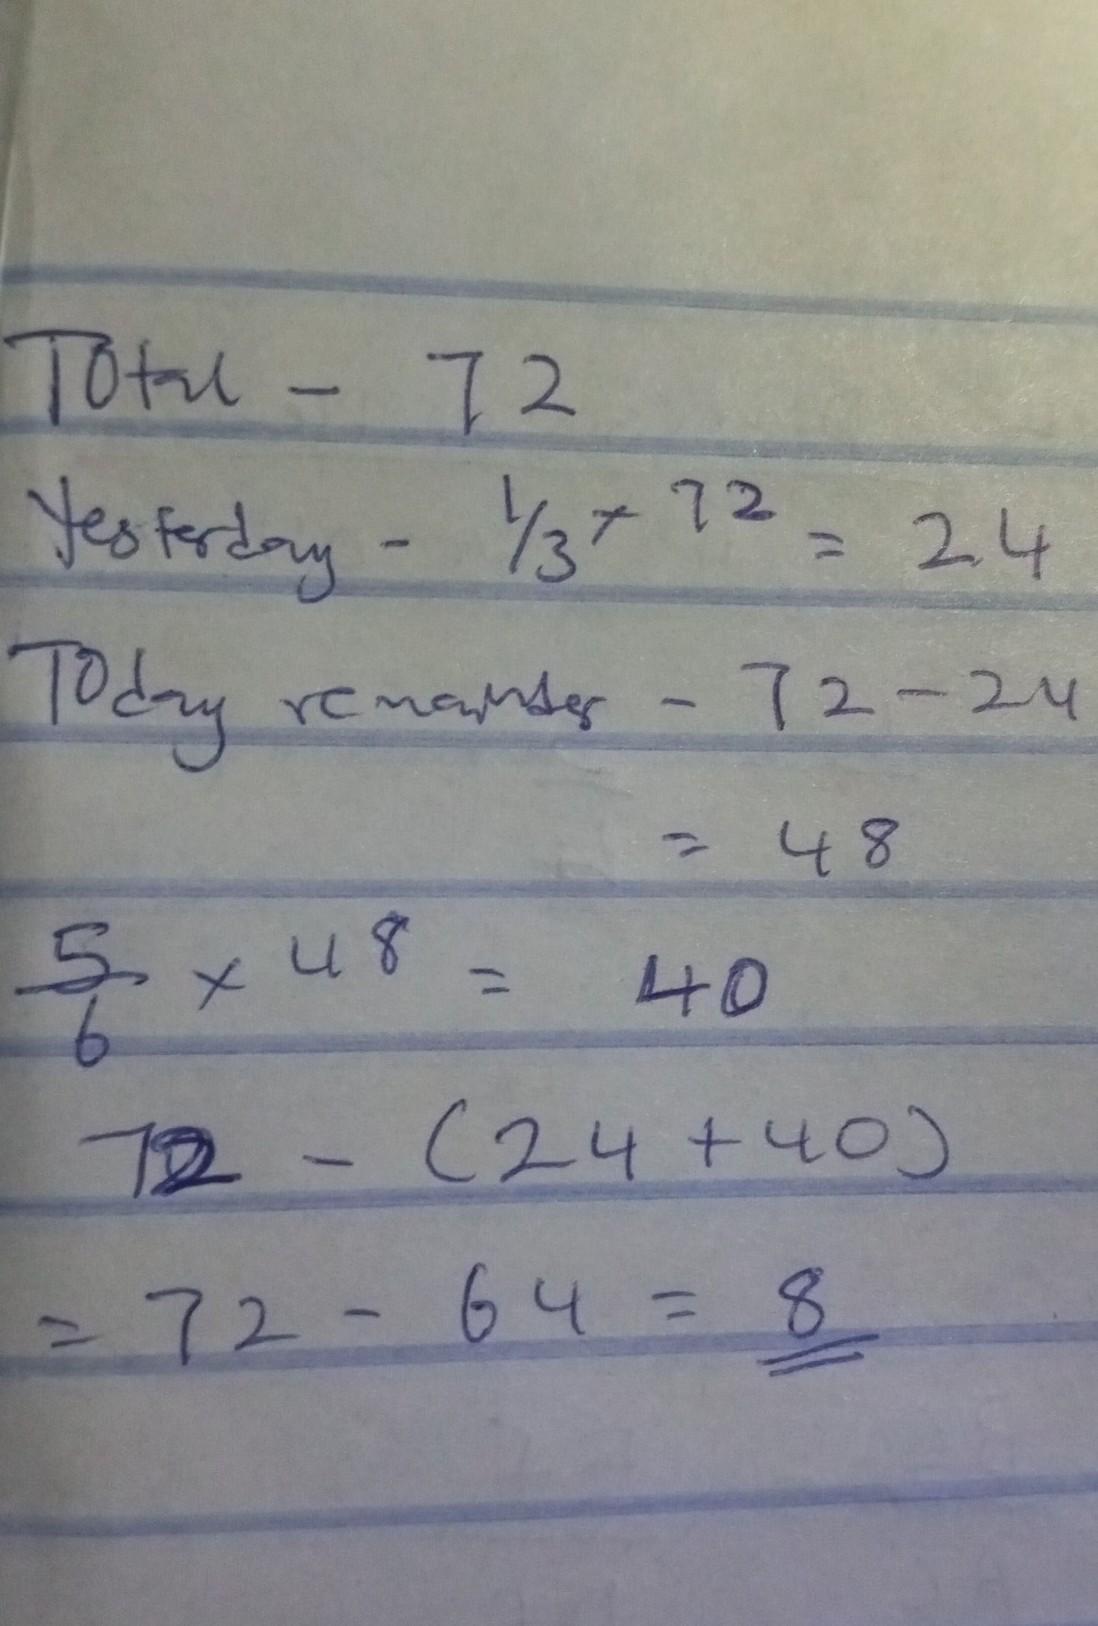 Total - 72
Yesterday - 1/3 × 72 = 24
Today remainder - 72 - 24
= 48
5/6 × 48 = 40
72 - (24 + 40)
= 72 - 64 = 8